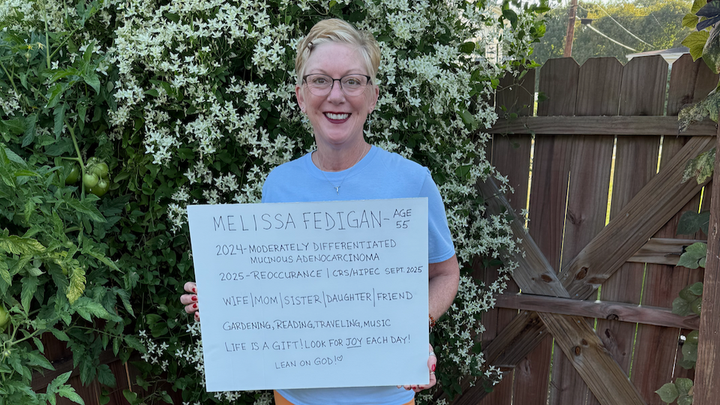 MELISSA FEDIGAN- AGE 55
2024-MODERATELY DIFFERENTIATED
MUCINOUS ADENOCARCINOMA
2025-REOCCURANCE | CRS/HIPEC SEPT 2025
WIFE|MOM|SISTER|DAUGHTER|FRIEND
GARDENING,READING,TRAVELING,MUSIC
LIFE IS A GIFT! LOOK FOR JOY EACH DAY!
LEAN ON GOD!♡